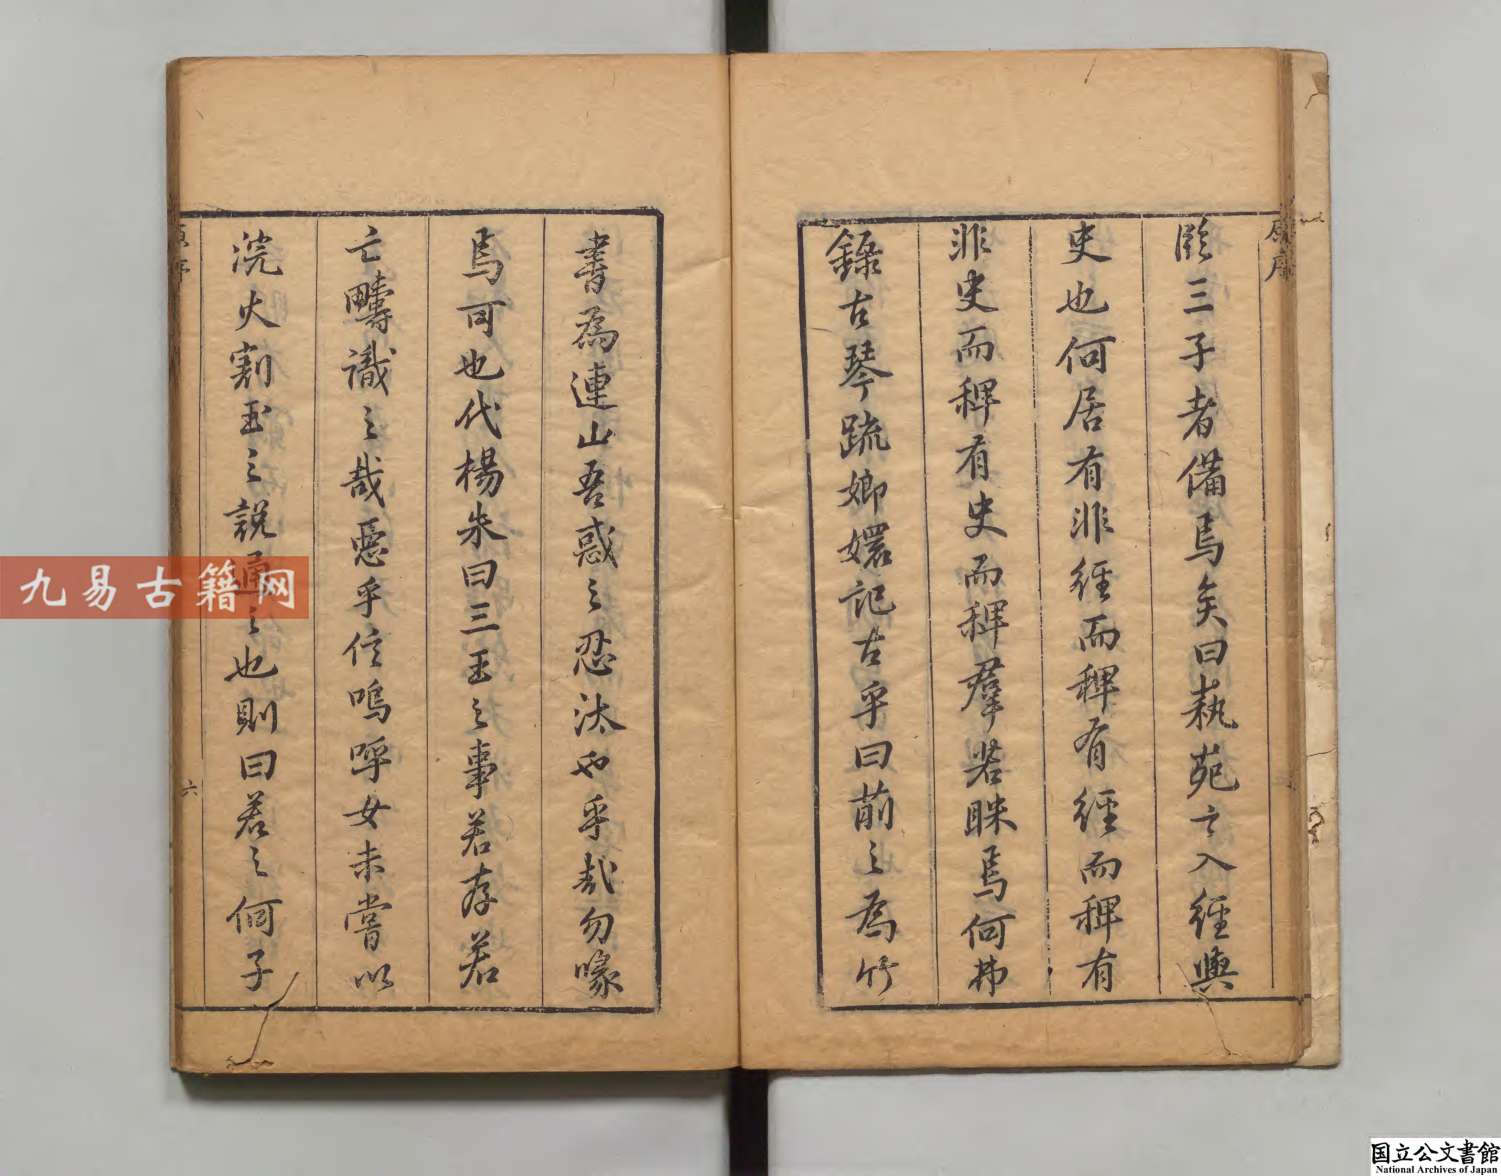 原序
三子者備焉矣曰執苑之入經與
史也何居有非經而稗有經而稗有
非史而稗有史而稗群若眯焉何弗
錄古琴疏嫏嬛記古乎曰前之為竹
書為連山吾惑之忍汰也乎哉勿喙
焉可也代楊朱曰三王之事若存若
亡疇識之哉惡乎信嗚呼女未嘗以
浣火割玉之說通之也則曰若之何子
原序
六
九易古籍网
国立公文書館
National Archives of Japan